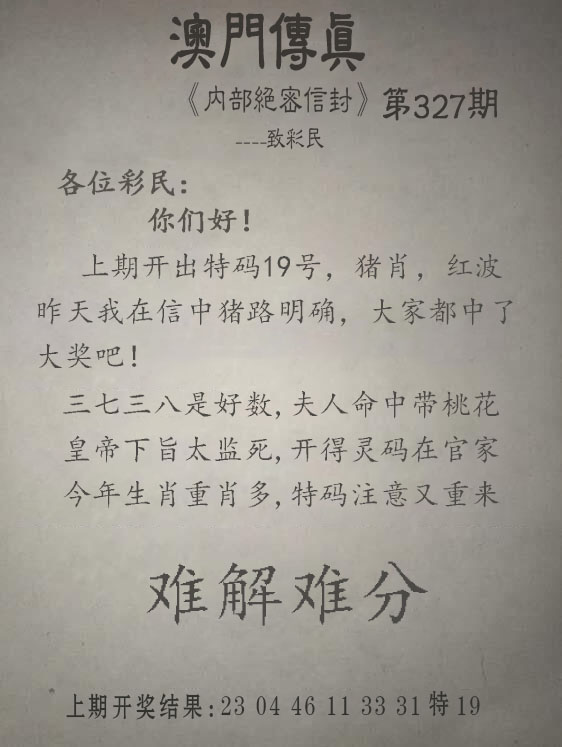 澳門傳眞
《内部絕密信封》第327期
----致彩民
各位彩民：
你们好！
上期开出特码19号，猪肖，红波
昨天我在信中猪路明确，大家都中了
大奖吧！
三七三八是好数,夫人命中带桃花
皇帝下旨太监死,开得灵码在官家
今年生肖重肖多,特码注意又重来
难解难分
上期开奖结果:23 04 46 11 33 31 特 19